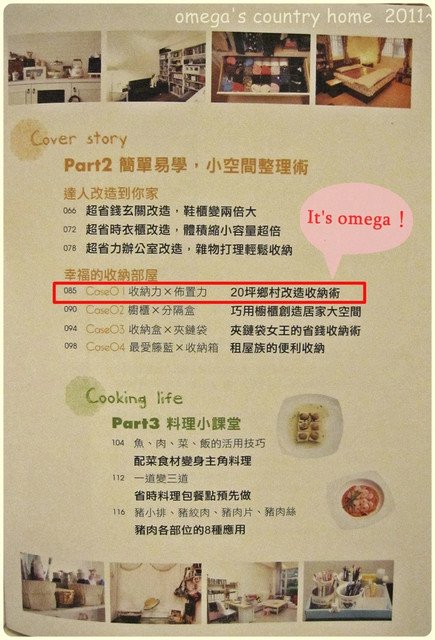 omega's country home 2011~
Cover story
Part2 簡單易學，小空間整理術
達人改造到你家
066 超省錢玄關改造，鞋櫃變兩倍大
072 超省時衣櫃改造，體積縮小容量超倍
078 超省力辦公室改造，雜物打理輕鬆收納
It's omega！
幸福的收納部屋
085 Case01 收納力×佈置力 20坪鄉村改造收納術
090 Case02 櫥櫃×分隔盒 巧用櫥櫃創造居家大空間
094 Case03 收納盒×夾鏈袋 夾鏈袋女王的省錢收納術
098 Case04 最愛籐籃×收納箱 租屋族的便利收納
Cooking life
Part3 料理小課堂
104 魚、肉、菜、飯的活用技巧
配菜食材變身主角料理
112 一道變三道
省時料理包餐點預先做
116 豬小排、豬絞肉、豬肉片、豬肉絲
豬肉各部位的8種應用